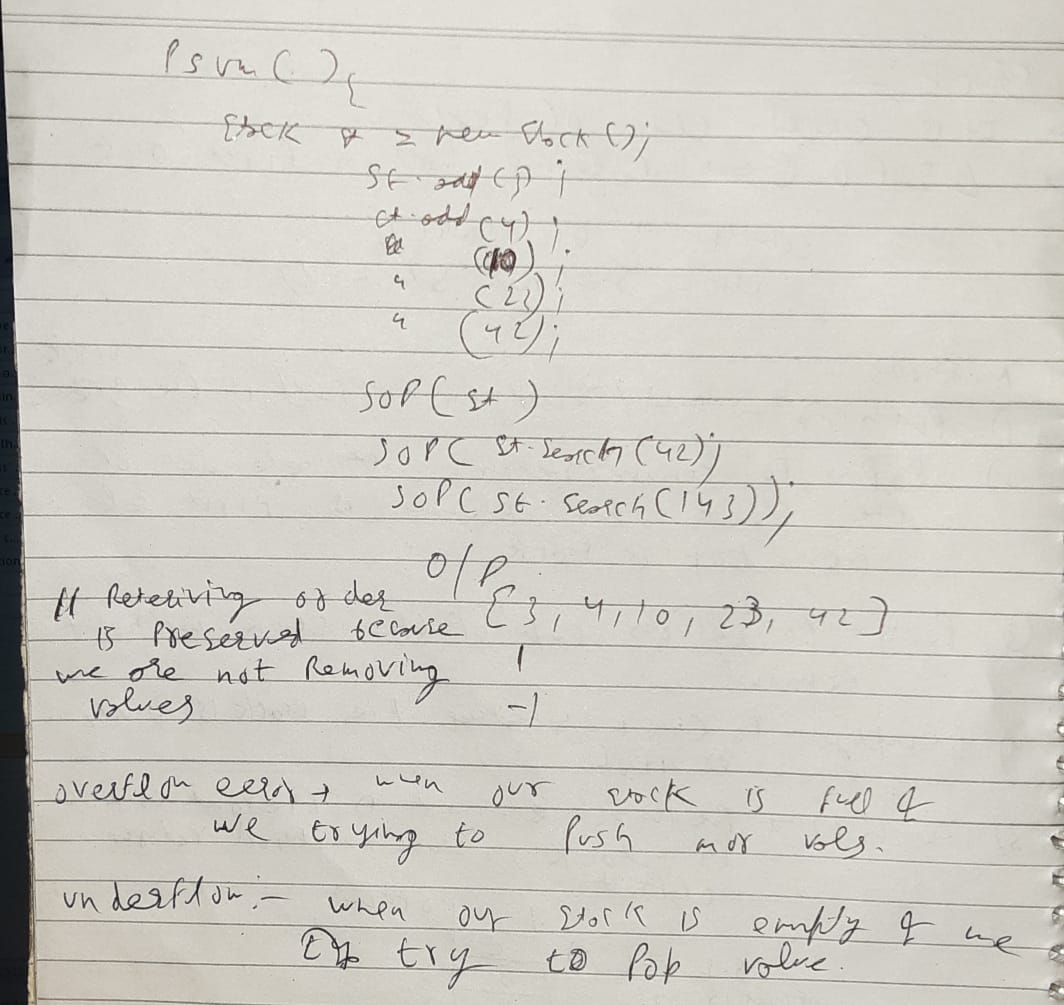 Psvm( ){
Stack st = new Stack();
St.add(3);
st.add(4);
(10);
" (23);
" (42);
SOP(st)
SOP( St.Serch(42);
SOP( St.Serech(143));
O/P
// Reteriving order [3, 4, 10, 23, 42]
is Preserved because
we are not Removing 1
values -1
overflow error → when our stack is full &
we trying to Push mor vals.
underflow :- when our stack is empty & we
try to Pop value.